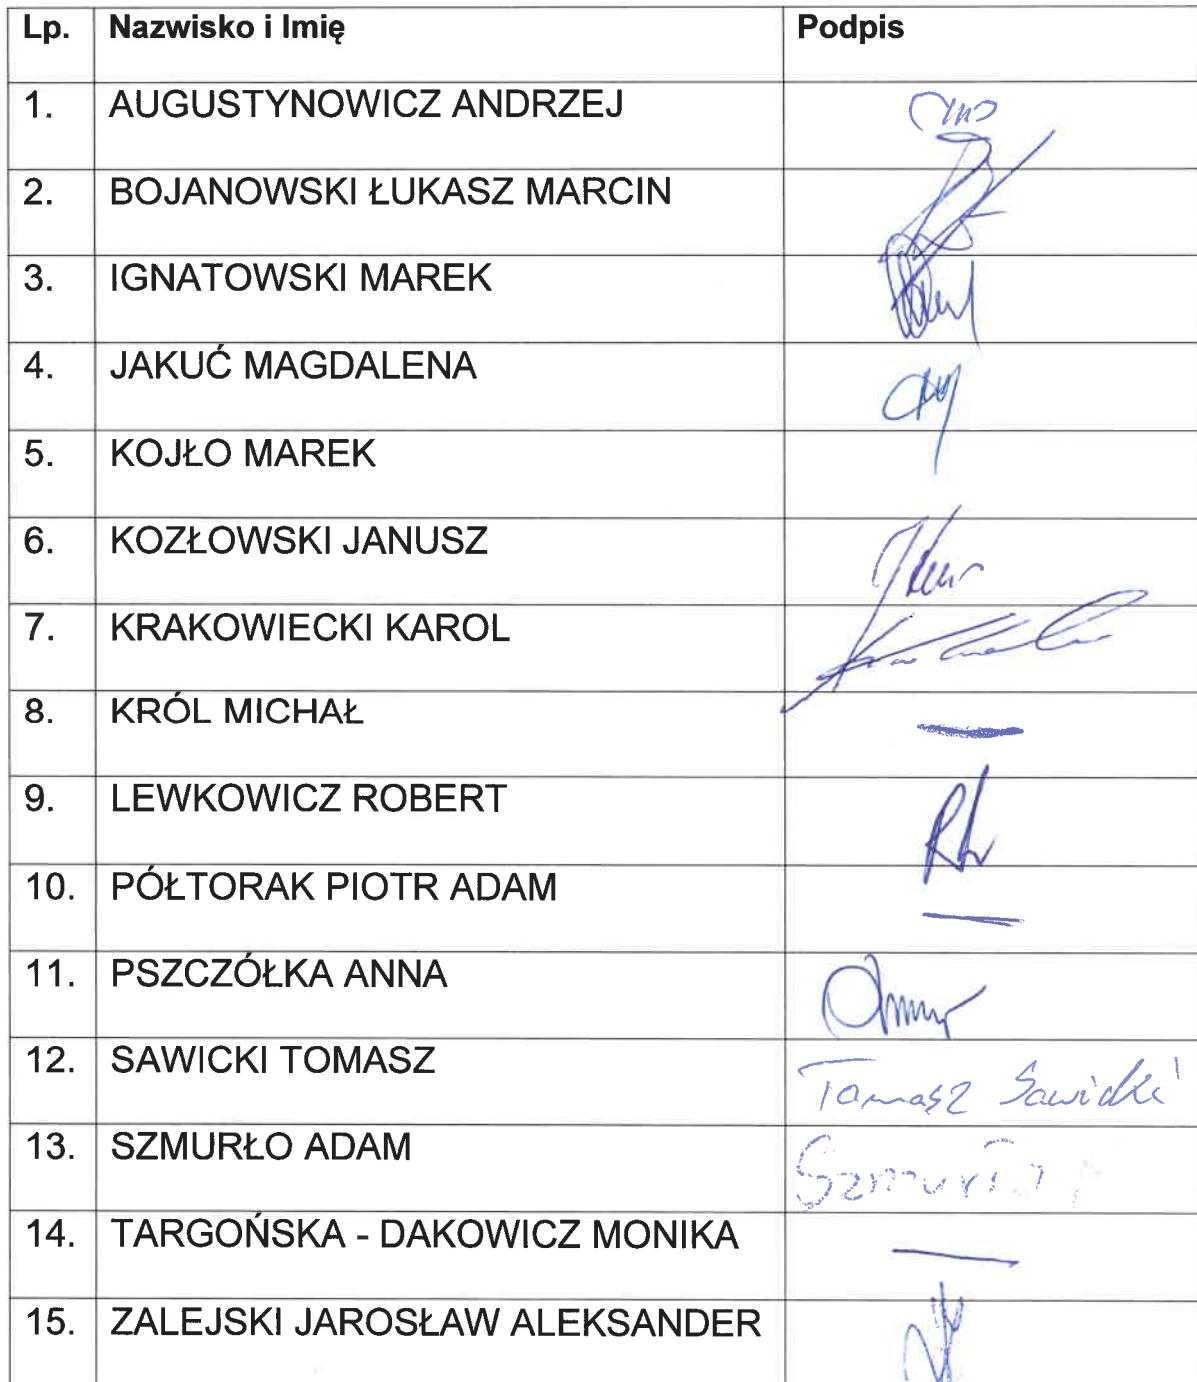 Lp. Nazwisko i Imię Podpis
1. AUGUSTYNOWICZ ANDRZEJ
2. BOJANOWSKI ŁUKASZ MARCIN
3. IGNATOWSKI MAREK
4. JAKUĆ MAGDALENA
5. KOJŁO MAREK
6. KOZŁOWSKI JANUSZ
7. KRAKOWIECKI KAROL
8. KRÓL MICHAŁ
9. LEWKOWICZ ROBERT
10. PÓŁTORAK PIOTR ADAM
11. PSZCZÓŁKA ANNA
12. SAWICKI TOMASZ Tomasz Sawicki
13. SZMURŁO ADAM Szmurło
14. TARGOŃSKA - DAKOWICZ MONIKA
15. ZALEJSKI JAROSŁAW ALEKSANDER